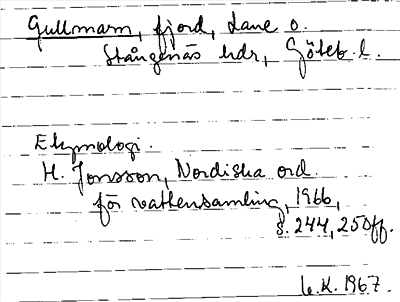 Gullmarn, fjord, Lane o.
Stångenäs hdr, Göteb. l.
Etymologi.
H. Jonsson, Nordiska ord
för vattensamling, 1966,
s. 244, 250ff.
L.K. 1967.